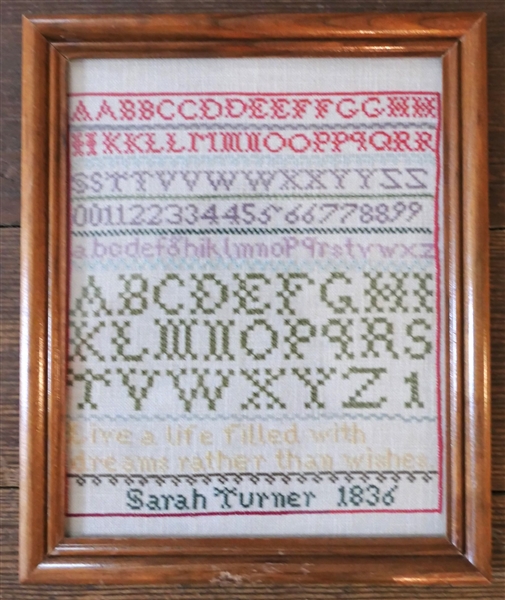 AABBCCDDEEFFGGHH
IIKKLLMMNNOOPPqQRR
SSTTVVWWXXYYZZ
00112233445566778899
abcdefghiklmnopqrstvwxz
ABCDEFGHI
KLMNOPqRS
TVWXYZ1
Live a life filled with
dreams rather than wishes
Sarah Turner 1836